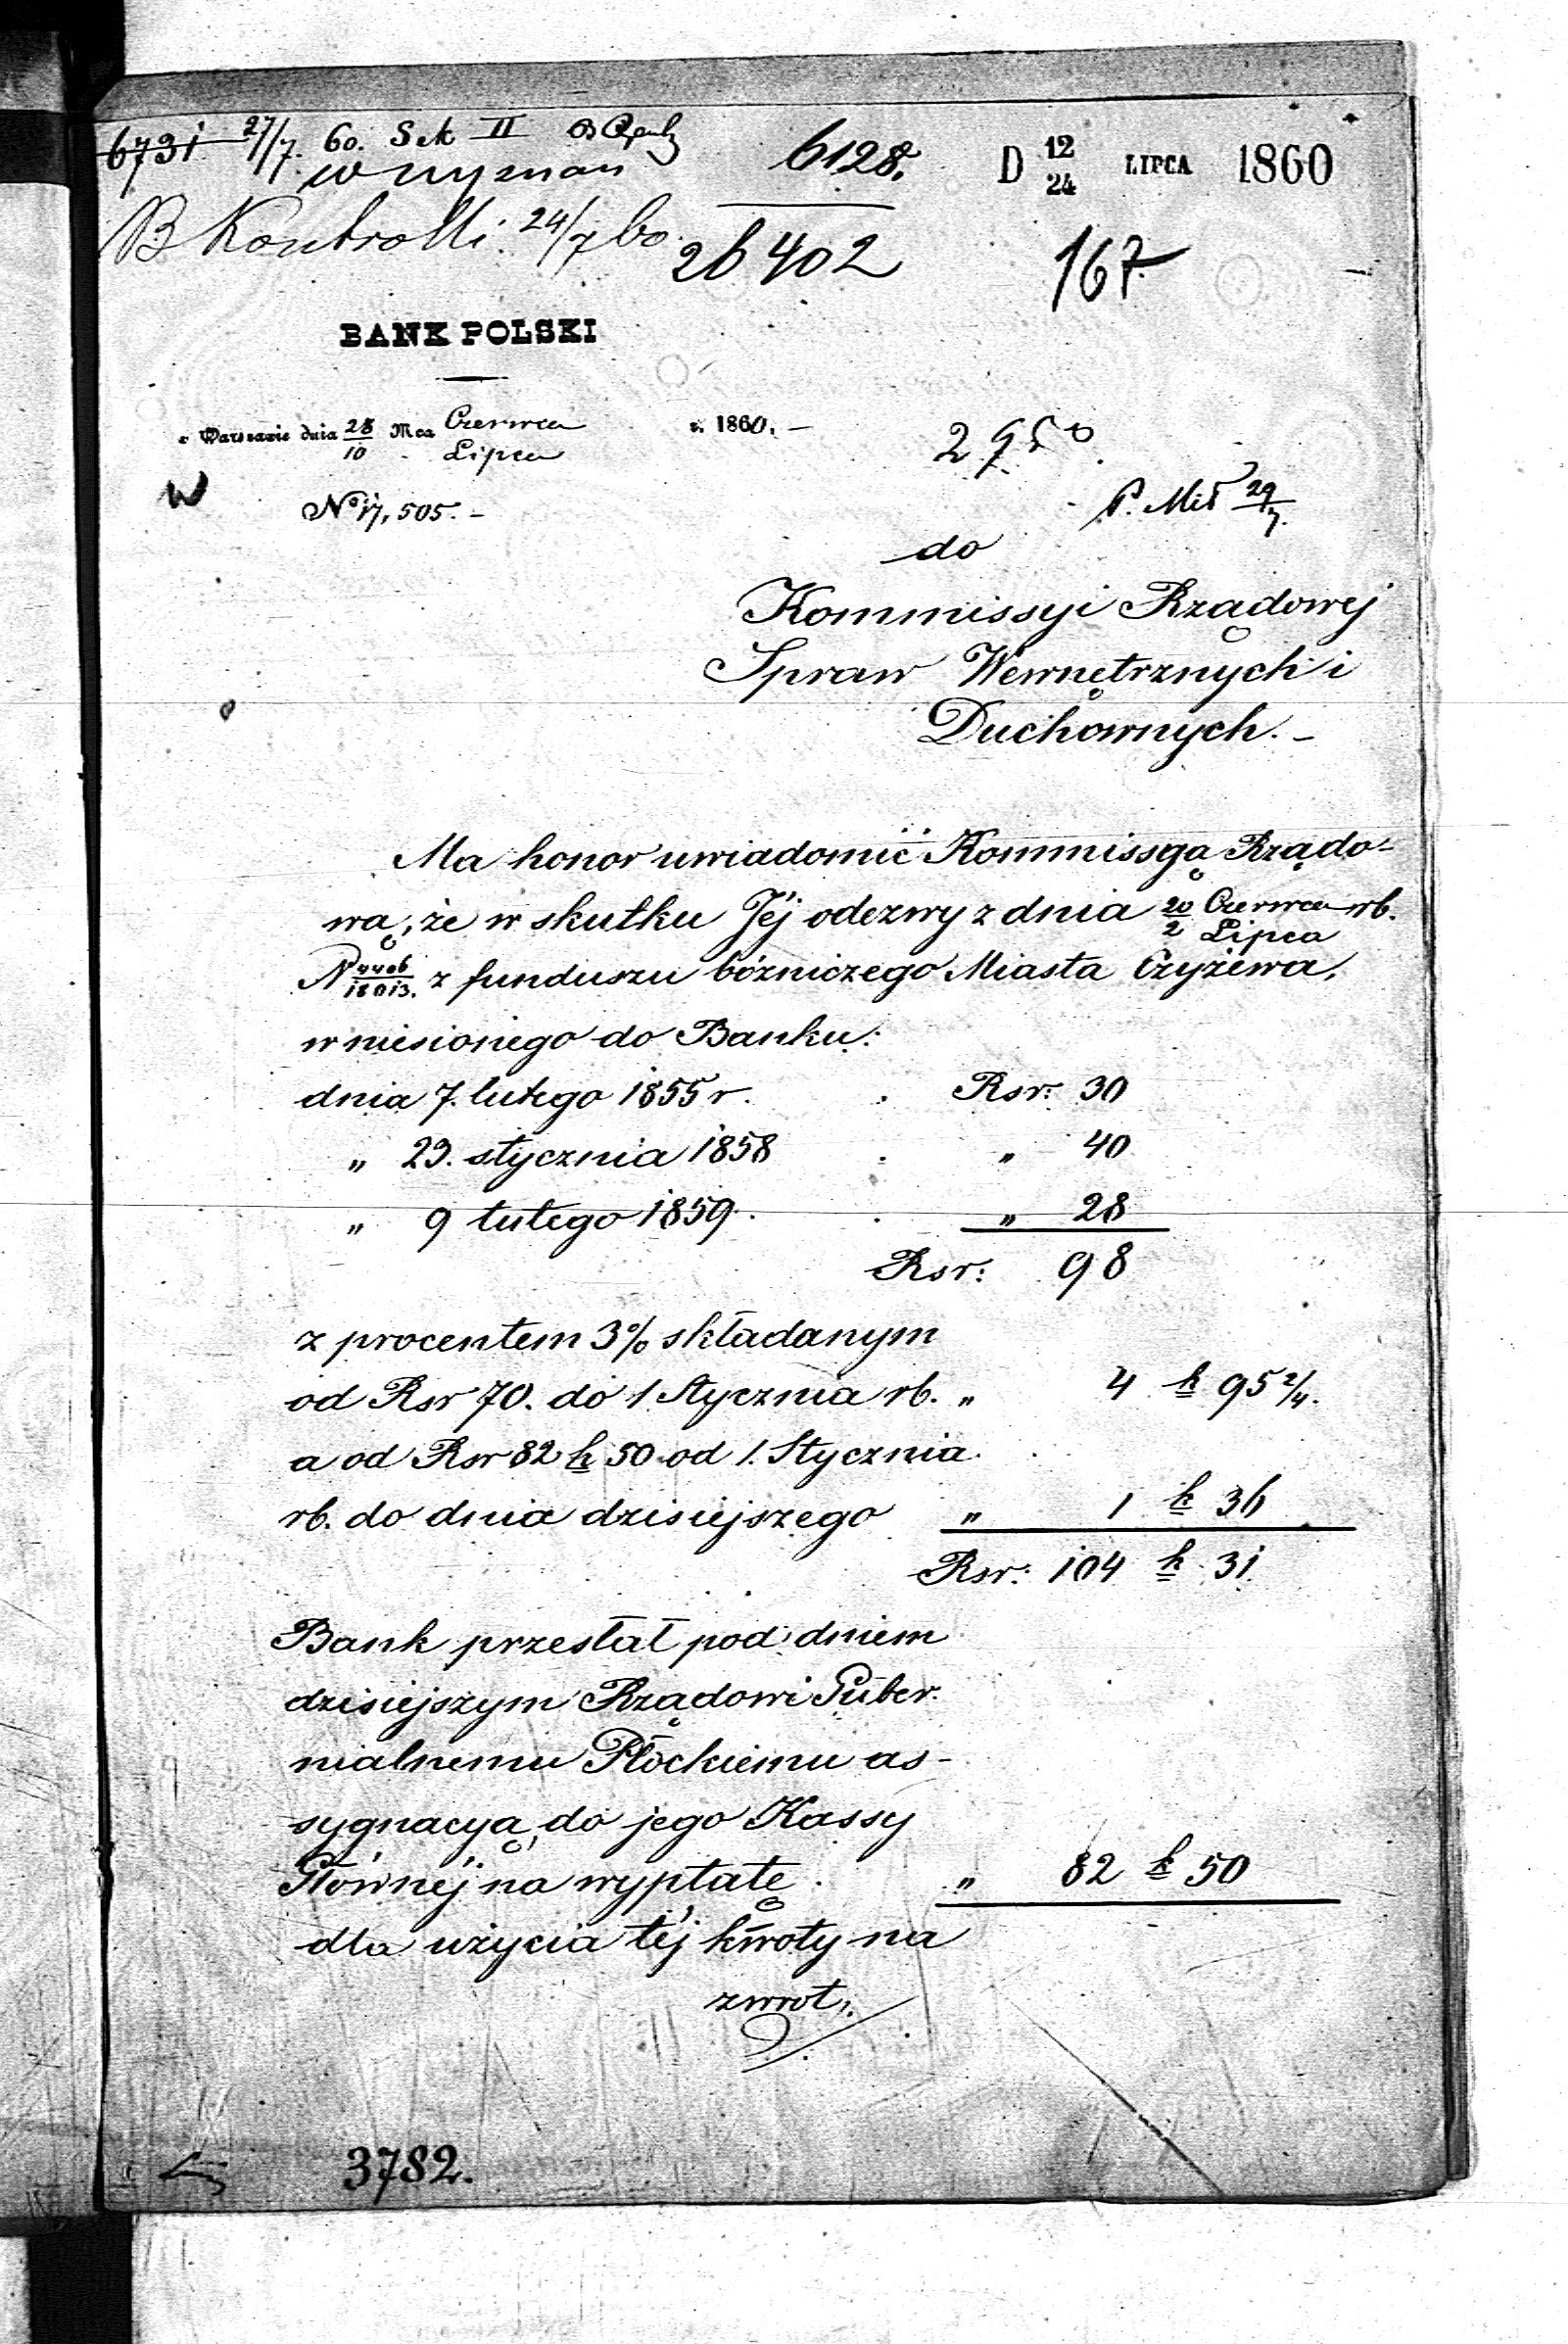 6731 27/7. 60. Sek II
6128.
D 12/24 LIPCA 1860
B Kontrolli 24/7 60.
26402
167
BANK POLSKI
w Warszawie dnia 28/10 Mca Czerwca/Lipca r. 1860. –
2950
No 17,505. –
29/7.
do
Kommissyi Rządowej
Spraw Wewnętrznych i
Duchownych. –
Ma honor uwiadomić Kommissyą Rządo-
wą, że w skutku Jéj odezwy z dnia 20/2 Czerwca/Lipca rb.
N 4406/18013. z funduszu bóżniczego Miasta Czyżewa,
wniesionego do Banku:
dnia 7. lutego 1855 r. . Rsr: 30
„ 23. stycznia 1858 . „ 40
„ 9 lutego 1859. . „ 28
Rsr: 98
z procentem 3% składanym
od Rsr 70. do 1 Stycznia rb. „ 4 k 95 2/4.
a od Rsr 82 k 50 od 1. Stycznia
rb. do dnia dzisiejszego „ 1 k 36
Rsr: 104 k 31
Bank przesłał pod dniem
dzisiejszym Rządowi Guber.
nialnemu Płockiemu as-
sygnacyą, do jego Kassy
Głównéj na wypłatę . „ 82 k 50
dla użycia téj kwoty na
zwrot,
3782.